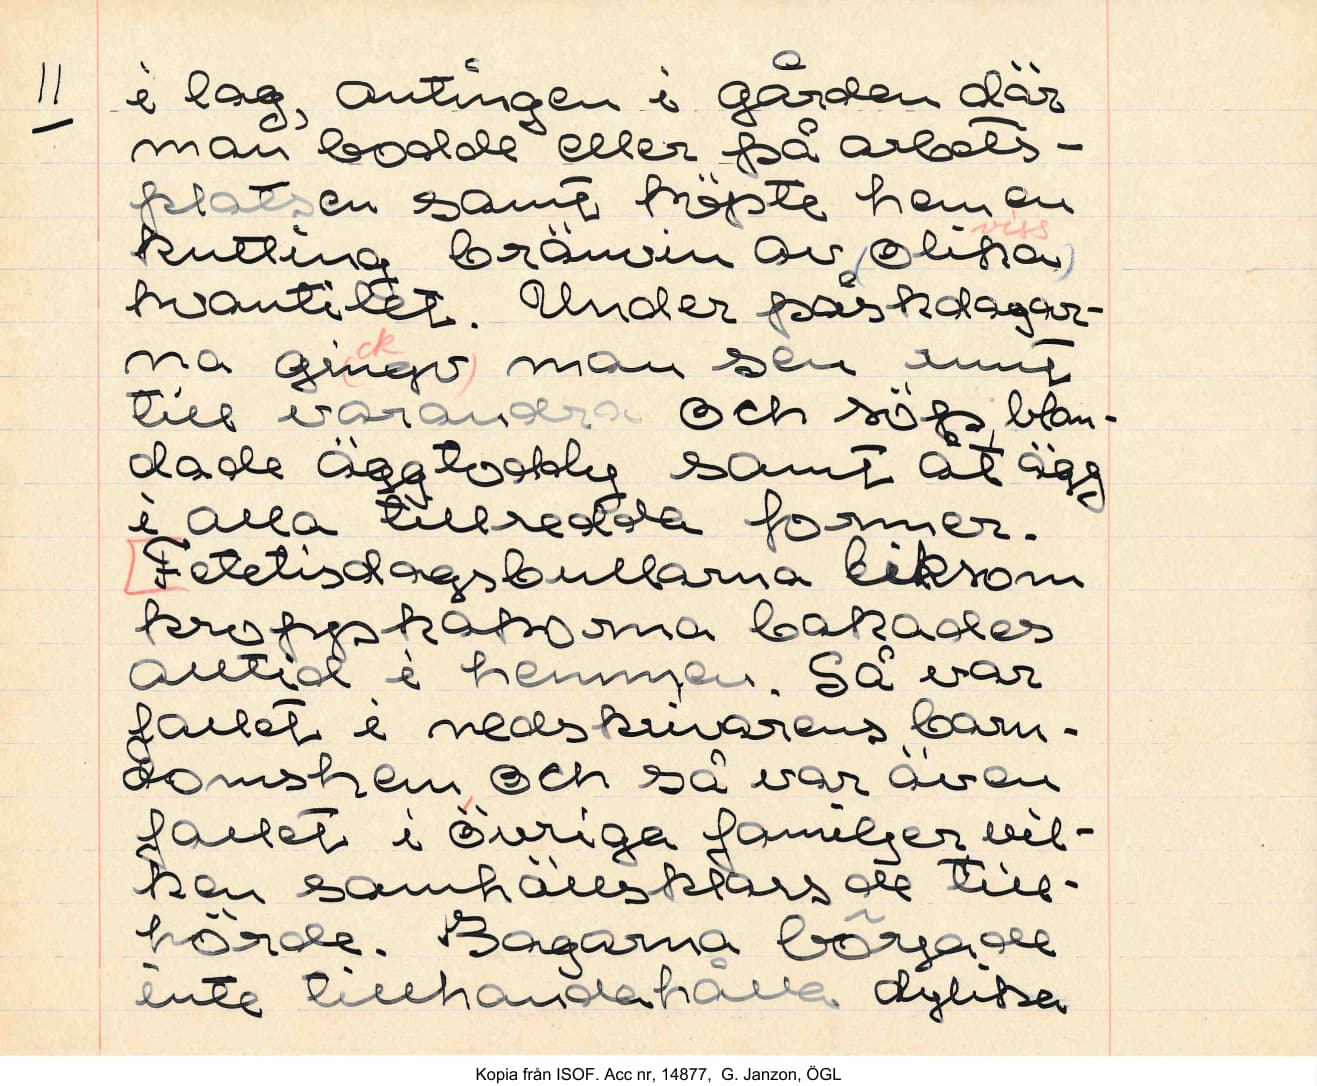 11
i lag, antingen i gården där
man bodde eller på arbets-
platsen samt köpte hem en
viss
kutting bränvin av (olika)
kvantitet. Under påskdagar-
ck
na gin(gv) man sen runt
till varandra och söp, blan-
dade äggtoddy samt åt ägg
i alla tillredda former.
[Fetetisdagsbullarna liksom
kroppkakorna bakades
alltid i hemmen. Så var
fallet i nedskrivarens barn-
domshem och så var även
fallet i övriga familjer vil-
ken samhällsklass de till-
hörde. Bagarna började
inte tillhandahålla dylika
Kopia från ISOF. Acc nr, 14877, G. Janzon, ÖGL